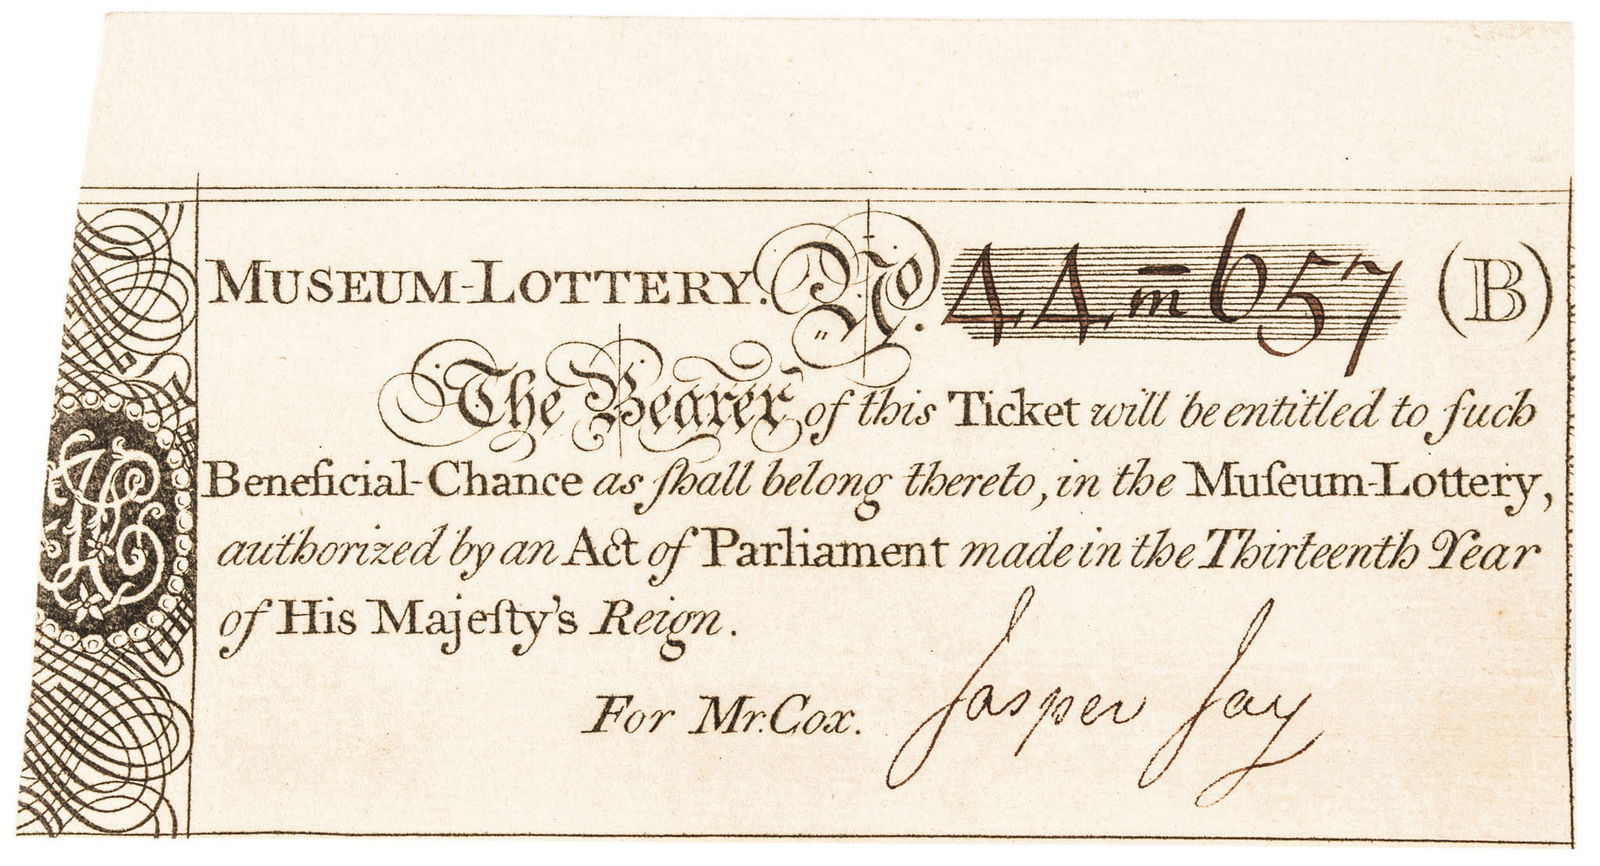 MUSEUM-LOTTERY. No. 44m̄657 (B)
The Bearer of this Ticket will be entitled to ſuch
Beneficial-Chance as ſhall belong thereto, in the Muſeum-Lottery,
authorized by an Act of Parliament made in the Thirteenth Year
of His Majeſty's Reign.
For Mr. Cox. Jasper Jay